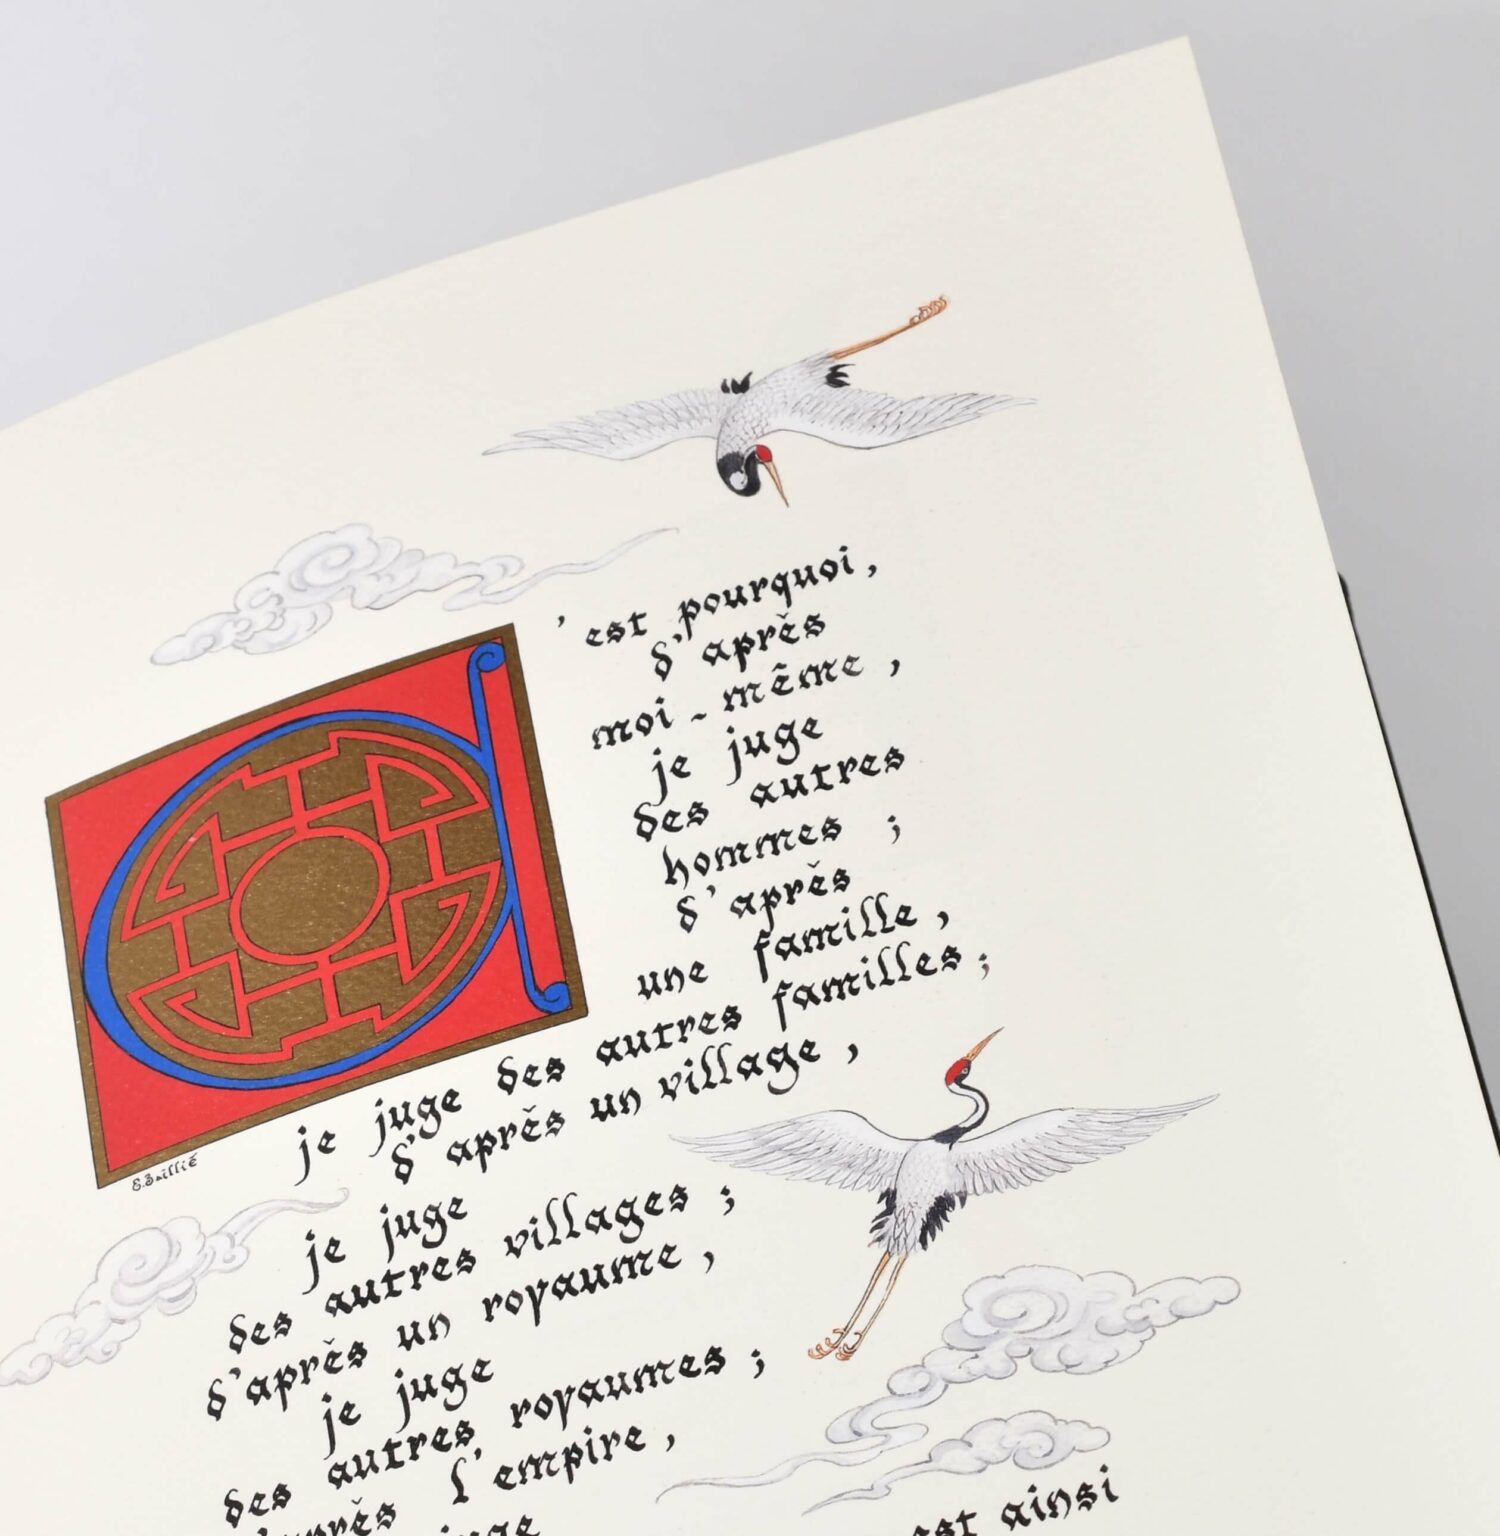 C'est pourquoi,
d'après
moi-même,
je juge
des autres
hommes ;
d'après
une famille,
je juge des autres familles;
d'après un village,
je juge
des autres villages ;
d'après un royaume,
je juge
des autres royaumes ;
d'après l'empire,
juge
est ainsi
E.Baillié